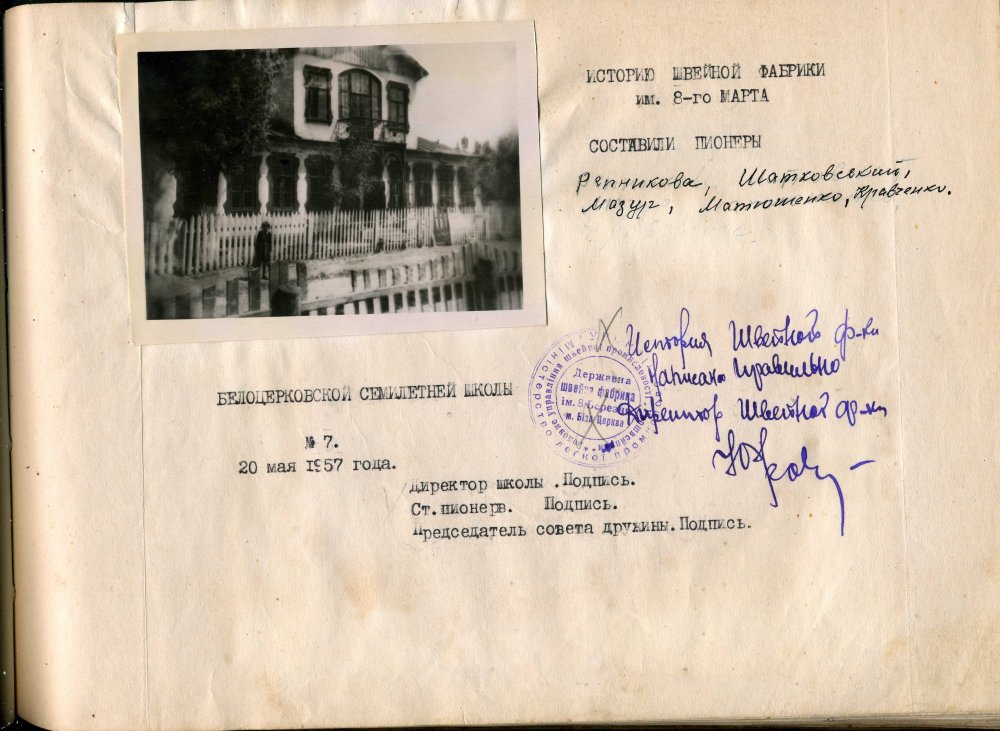 ИСТОРИЮ ШВЕЙНОЙ ФАБРИКИ
им. 8-го МАРТА
СОСТАВИЛИ ПИОНЕРЫ
Репникова, Шатковський,
Мазур, Матюшенко, Кравченко.
История Швейной ф-ки
написана правильно
Директор Швейной ф-ки
Державна
швейна фабрика
ім. 8 Березня
м. Біла Церква
БЕЛОЦЕРКОВСКОЙ СЕМИЛЕТНЕЙ ШКОЛЫ
№ 7.
20 мая 1957 года.
Директор школы .Подпись.
Ст.пионерв. Подпись.
Председатель совета дружины.Подпись.